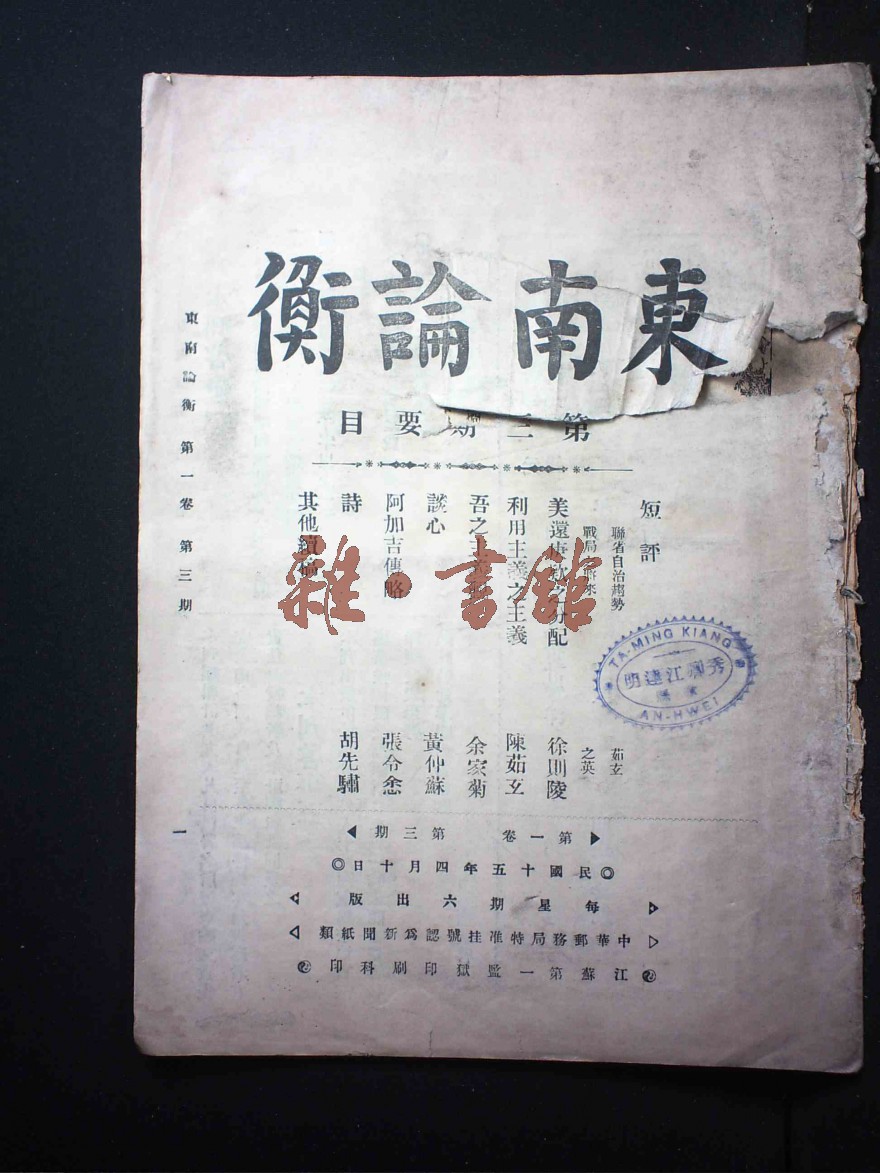 東南論衡
第三期要目
短評
聯省自治趨勢 茹玄
戰局 將來 之英
美還庚款之分配 徐則陵
利用主義之主義 陳茹玄
吾之主 余家菊
談心 黃仲蘇
阿加吉傳略 張令悆
詩 胡先驌
其他續稿
第一卷 第三期
◎民國十五年四月十日◎
每星期六出版
中華郵務局特准挂號認爲新聞紙類
江蘇第一監獄印刷科印
東南論衡 第一卷 第三期
一
TA-MING KIANG
秀卿江達明
AN-HWEI
雜·書館